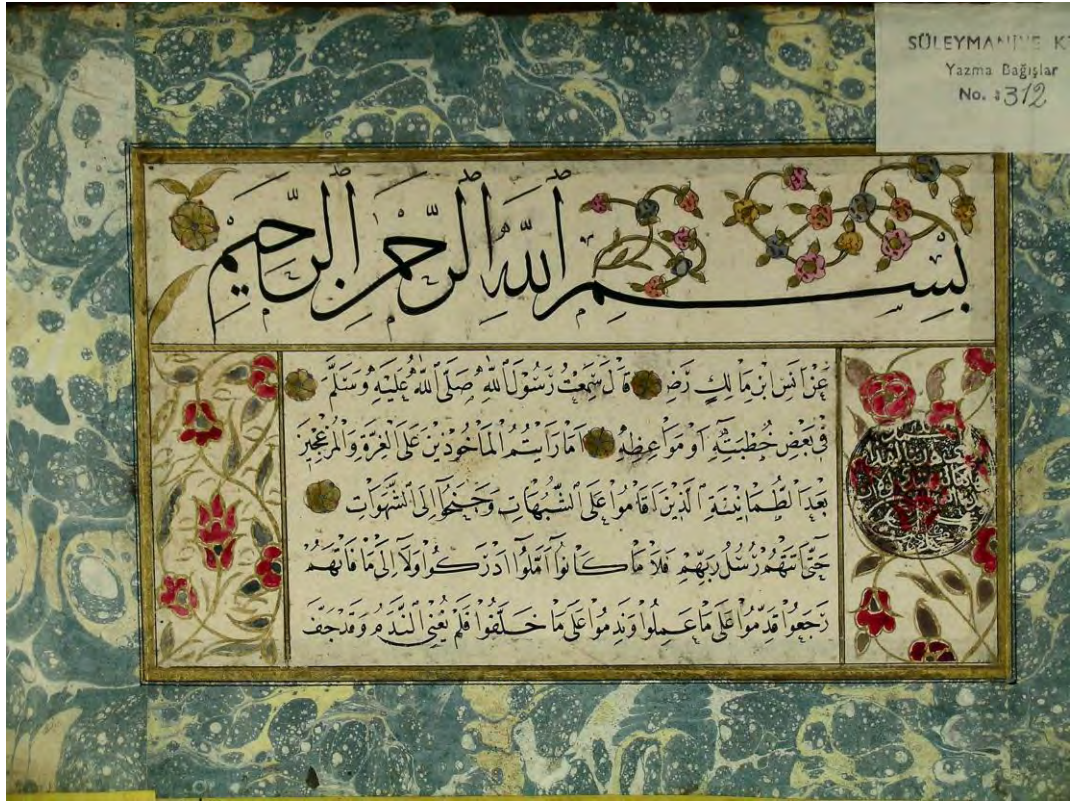 SÜLEYMANİYE K
Yazma Bağışlar
No. : 312
بِسْمِ اللهِ الرَّحْمٰنِ الرَّحِيمِ
عَنْ اَنَسِ ابْنِ مَالِكٍ رَضِ قَالَ سَمِعْتُ رَسُولَ اللهِ صَلَّى اللهُ عَلَيْهِ وَسَلَّمَ
فِى بَعْضِ خُطْبَتِهِ اَوْ مَوَاعِظِهِ اَمَا رَاَيْتُمُ الْمَاخُوذِينَ عَلَى الْغِرَّةِ وَالْمُزْعَجِينَ
بَعْدَ الطُّمَانِينَةِ الَّذِينَ اَقَامُوا عَلَى الشُّبُهَاتِ وَجَنَحُوا اِلَى الشَّهَوَاتِ
حَتَّى اَتَتْهُمْ رُسُلُ رَبِّهِمْ فَلَا مَا كَانُوا اَمَّلُوا اَدْرَكُوا وَلَا اِلَى مَا فَاتَهُمْ
رَجَعُوا قَدِمُوا عَلَى مَا عَمِلُوا وَنَدِمُوا عَلَى مَا خَلَّفُوا فَلَمْ يُغْنِ النَّدَمُ وَقَدْ جَفَّ